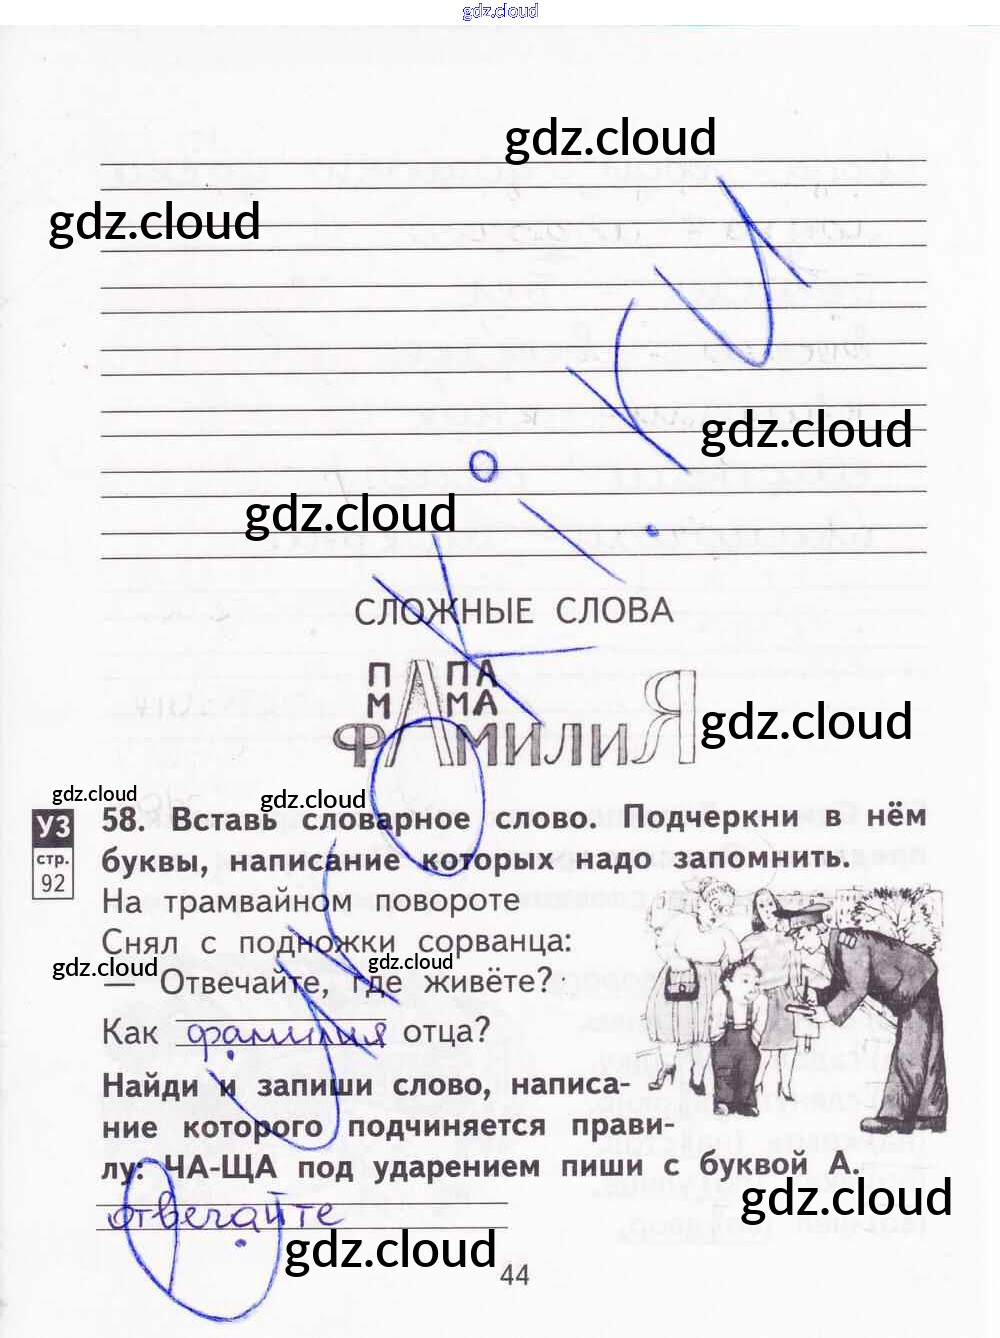 gdz.cloud
gdz.cloud
gdz.cloud
gdz.cloud
gdz.cloud
СЛОЖНЫЕ СЛОВА
ПАПА
МАМА
ФАМИЛИЯ
gdz.cloud
gdz.cloud
gdz.cloud
УЗ
стр.
92
58. Вставь словарное слово. Подчеркни в нём
буквы, написание которых надо запомнить.
На трамвайном повороте
Снял с подножки сорванца:
gdz.cloud
gdz.cloud
— Отвечайте, где живёте?
Как фамилия отца?
Найди и запиши слово, написа-
ние которого подчиняется прави-
лу: ЧА-ЩА под ударением пиши с буквой А.
gdz.cloud
отвечайте
gdz.cloud
44